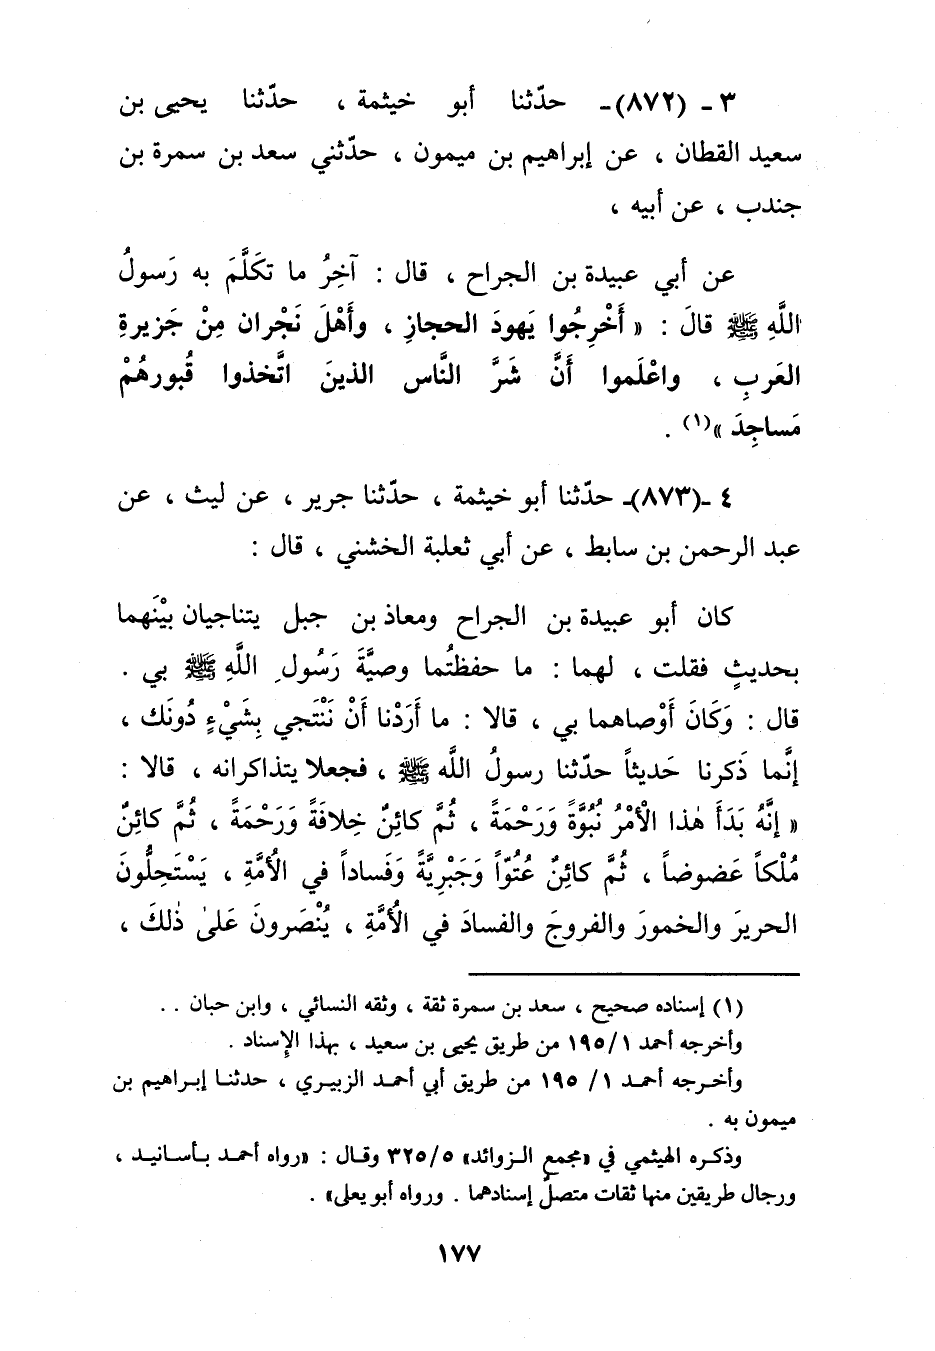 ٣ - (٨٧٢)- حدّثنا أبو خيثمة ، حدّثنا يحيى بن
سعيد القطان ، عن إبراهيم بن ميمون ، حدّثني سعد بن سمرة بن
جندب ، عن أبيه ،
عن أبي عبيدة بن الجراح ، قال : آخِرُ ما تكَلَّمَ به رَسولُ
اللَّهِ ﷺ قالَ : « أَخْرِجُوا يَهودَ الحجازِ ، وأَهْلَ نَجْران مِنْ جَزيرةِ
العَربِ ، واعْلَموا أَنَّ شَرَّ النَّاس الذينَ اتَّخذوا قُبورهُمْ
مَساجِدَ »(١) .
٤ -(٨٧٣)- حدّثنا أبو خيثمة ، حدّثنا جرير ، عن ليث ، عن
عبد الرحمن بن سابط ، عن أبي ثعلبة الخشني ، قال :
كان أبو عبيدة بن الجراح ومعاذ بن جبل يتناجيان بيْنَهما
بحديثٍ فقلت ، لهما : ما حفظتُما وصيَّةَ رَسُولِ اللَّهِ ﷺ بي .
قال : وَكَانَ أَوْصاهما بي ، قالا : ما أَرَدْنا أَنْ نَنْتَجي بِشَيْءٍ دُونَك ،
إنَّما ذَكرنا حَديثاً حدّثنا رسولُ اللَّه ﷺ ، فجعلا يتذاكرانه ، قالا :
« إنَّهُ بَدَأَ هٰذا الْأمْرُ نُبُوَّةً وَرَحْمَةً ، ثُمَّ كائِنٌ خِلافَةً وَرَحْمَةً ، ثُمَّ كائِنٌ
مُلْكاً عَضوضاً ، ثُمَّ كائِنٌ عُتُوّاً وَجَبْرِيَّةً وَفَساداً في الُأمَّةِ ، يَسْتَحِلُّونَ
الحريرَ والخمورَ والفروجَ والفسادَ في الُأمَّةِ ، يُنْصَرونَ عَلىٰ ذٰلكَ ،
(١) إسناده صحيح ، سعد بن سمرة ثقة ، وثقه النسائي ، وابن حبان . .
وأخرجه أحمد ١ / ١٩٥ من طريق يحيى بن سعيد ، بهذا الإسناد .
وأخرجه أحمد ١ / ١٩٥ من طريق أبي أحمد الزبيري ، حدثنا إبراهيم بن
ميمون به .
وذكره الهيثمي في «مجمع الزوائد» ٥ / ٣٢٥ وقال : «رواه أحمد بأسانيد ،
ورجال طريقين منها ثقات متصلٌ إسنادهما . ورواه أبو يعلى» .
١٧٧